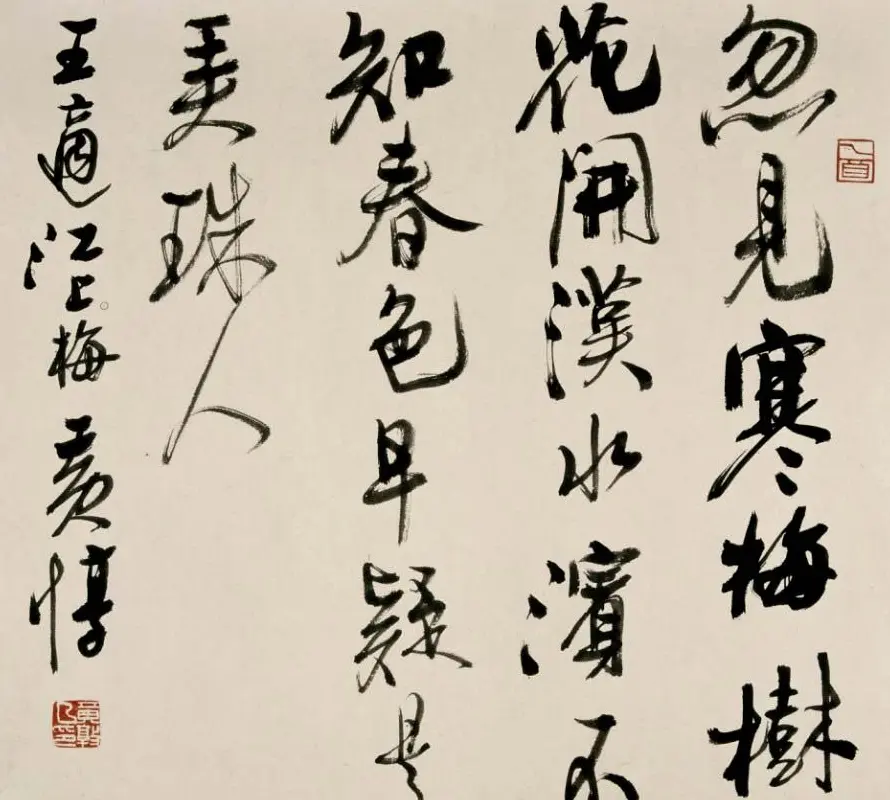 忽見寒梅樹
花開漢水濱不
知春色早疑是
弄珠人
王適江上梅 黃惇
黃惇之印